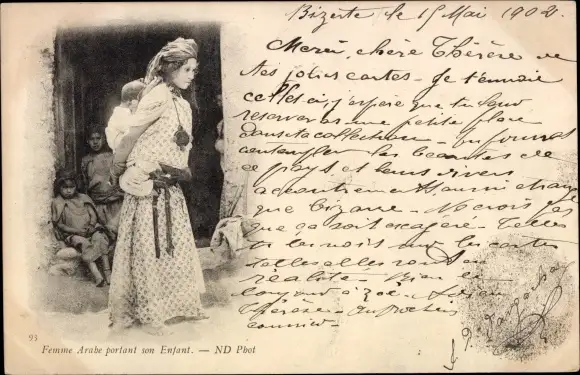 Bizerte le 15 Mai 1902
Merci, chère Thérèse de
tes jolies cartes - Je t'envoie
celles ci, j'espère que tu leur
reserveras une petite place
dans ta collection - Tu pourras
contempler les beautés de
ce pays et leurs divers
accoutrements aussi
que bizarre - Ne crois pas
que ça soit exagéré - Telles
tu les vois sur les cartes
telles elles sont en
réalité - Bien
Thérèse -
courrier -
93
Femme Arabe portant son Enfant. — ND Phot